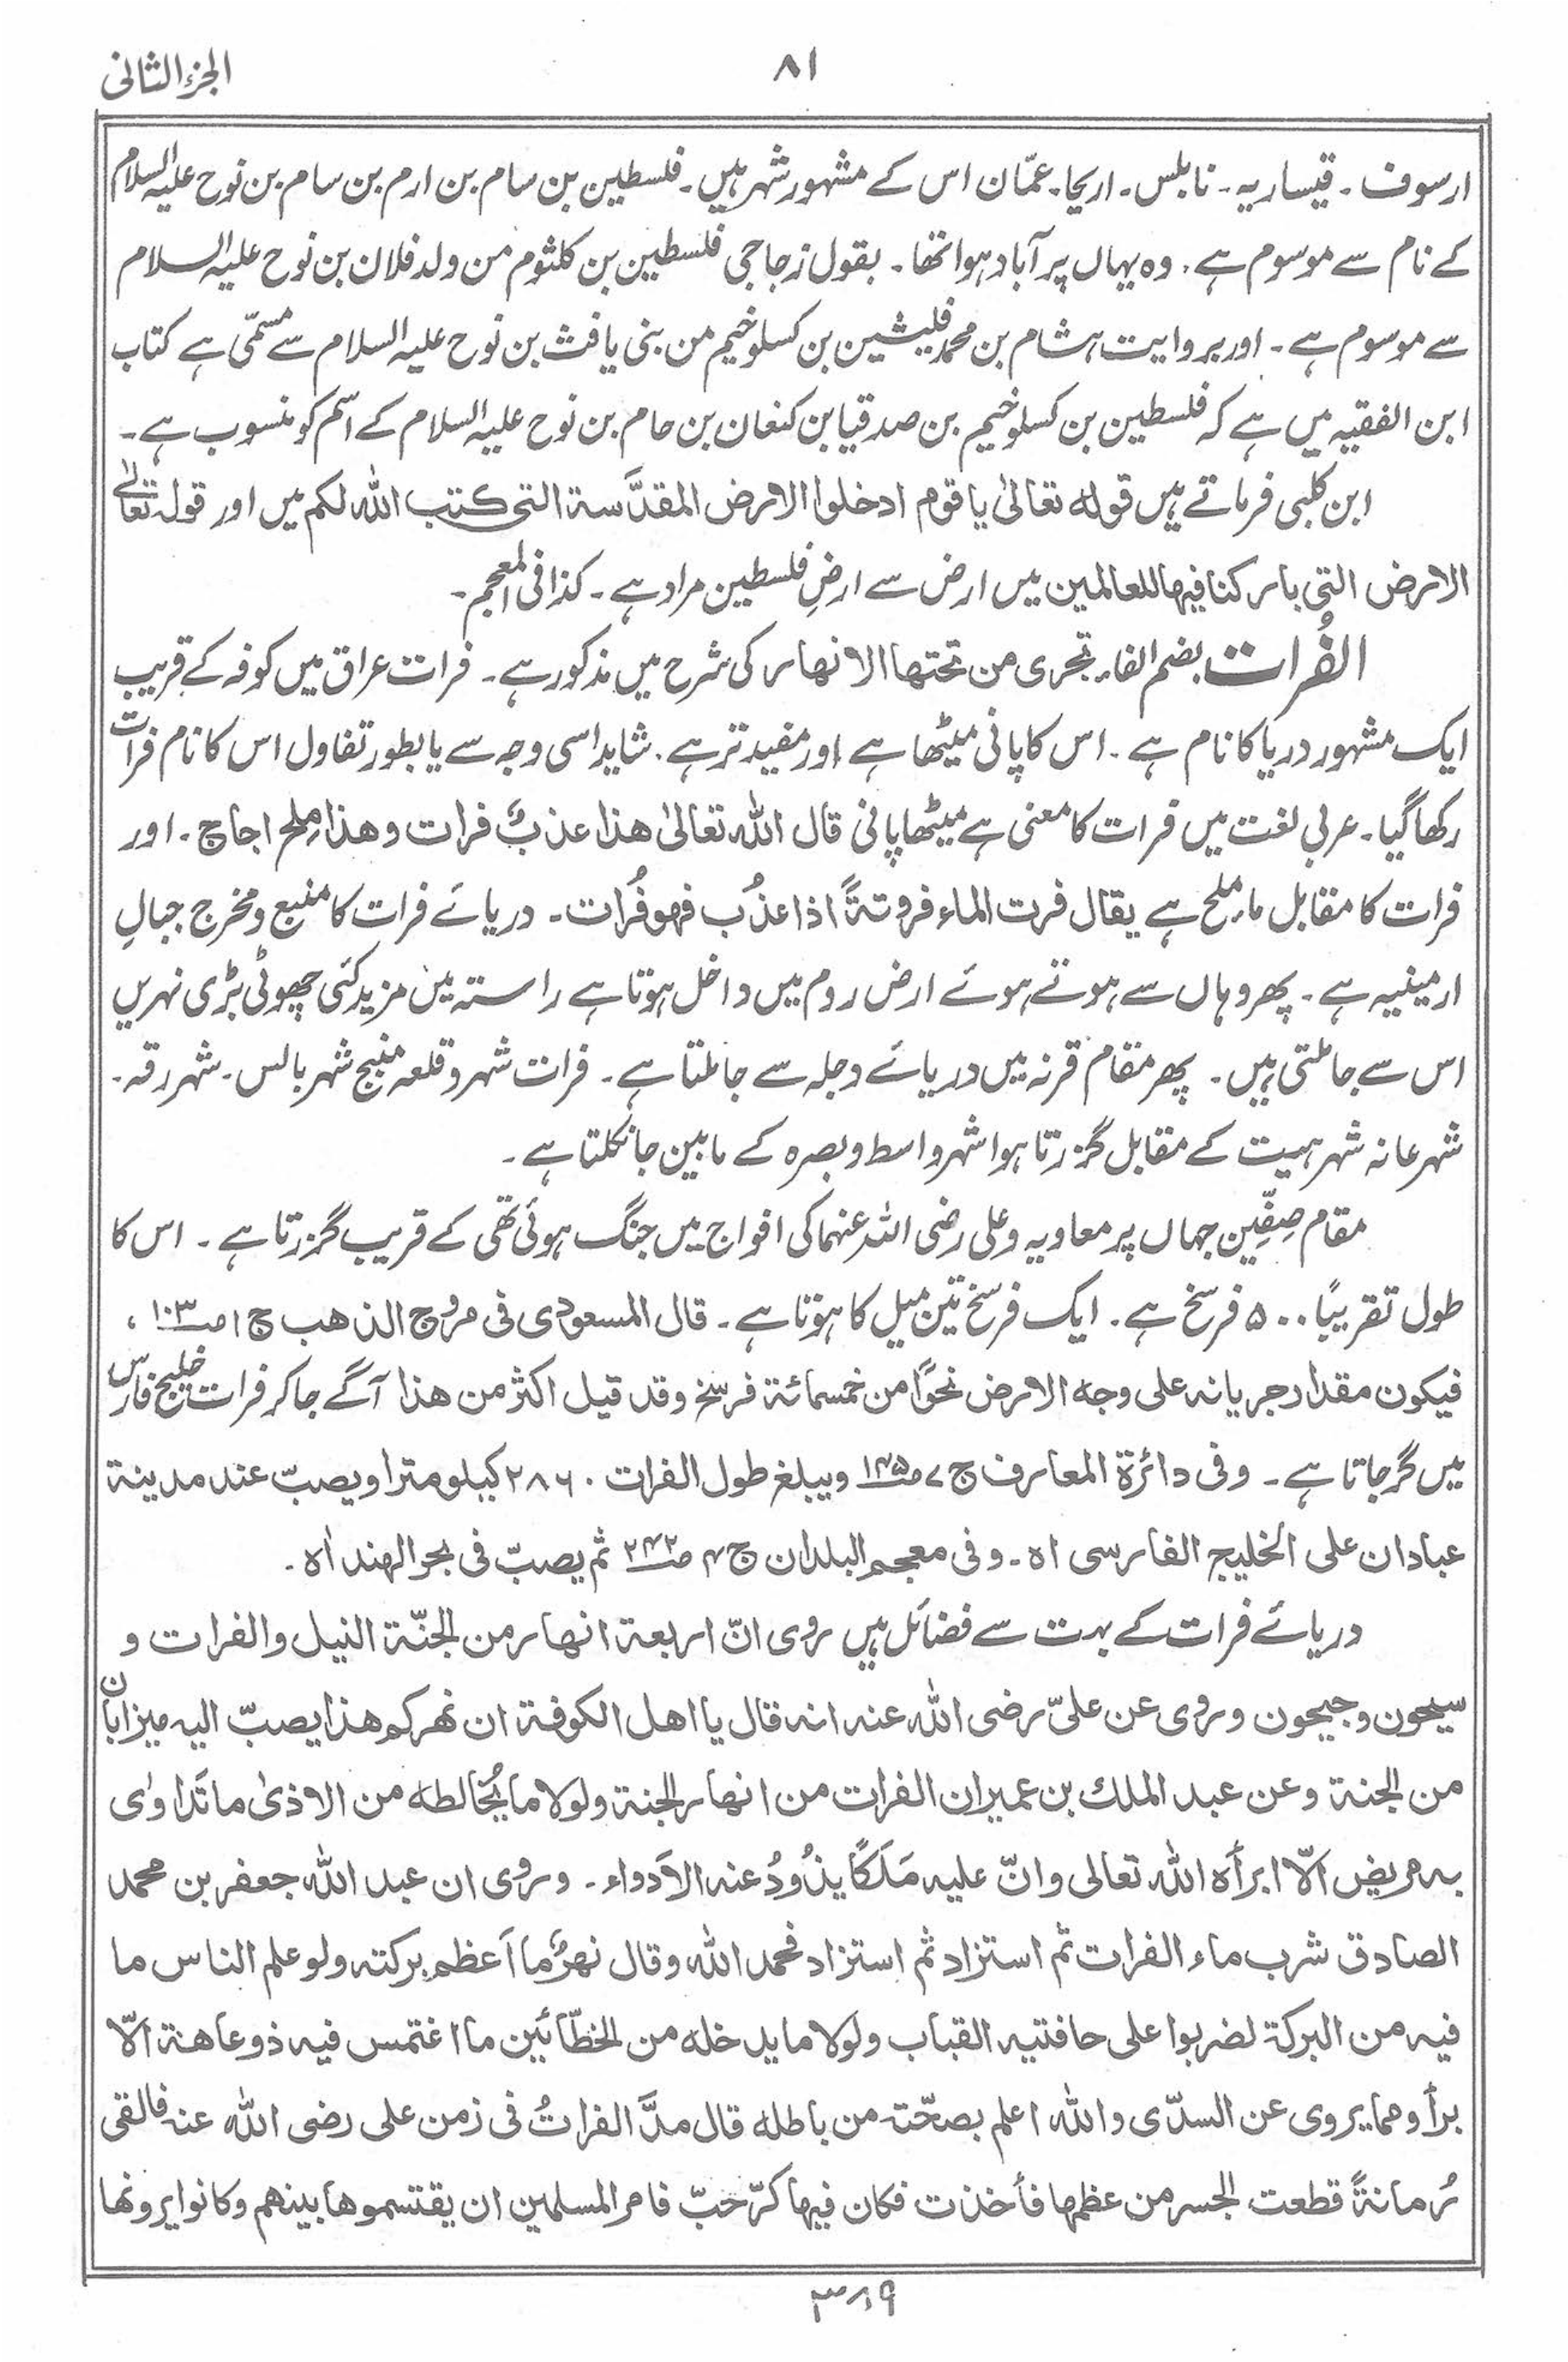 الجزء الثانی
۸۱
ارسوف ۔ قیساریہ ۔ نابلس ۔ اریحا ۔ عمّان اس کے مشہور شہر ہیں ۔ فلسطین بن سام بن ارم بن سام بن نوح علیہ السلام
کے نام سے موسوم ہے ، وہ یہاں پر آباد ہوا تھا ۔ بقول زجاجی فلسطین بن کلثوم من ولد فلان بن نوح علیہ السلام
سے موسوم ہے ۔ اور بروایت ہشام بن محمد فلیشین بن کسلوخیم من بنی یافث بن نوح علیہ السلام سے مسمّی ہے کتاب
ابن الفقیہ میں ہے کہ فلسطین بن کسلوخیم بن صدقیا بن کنعان بن حام بن نوح علیہ السلام کے اسم کو منسوب ہے ۔
ابن کلبی فرماتے ہیں قوله تعالیٰ یا قوم ادخلوا الارض المقدَّسة التی کتب الله لکم میں اور قولہ تعالےٰ
الارض التی بارکنا فیها للعالمین میں ارض سے ارضِ فلسطین مراد ہے ۔ کذا فی المعجم ۔
الفُرات بضم الفاء ۔ تجری من تحتها الانهار کی شرح میں مذکور ہے ۔ فرات عراق میں کوفہ کے قریب
ایک مشہور دریا کا نام ہے ۔ اس کا پانی میٹھا ہے اور مفید تر ہے ۔ شاید اسی وجہ سے یا بطور تفاول اس کا نام فرات
رکھا گیا ۔ عربی لغت میں فرات کا معنی ہے میٹھا پانی قال الله تعالیٰ هذا عذبٌ فرات وهذا ملح اجاج ۔ اور
فرات کا مقابل ماء ملح ہے یقال فرت الماء فروتةً اذا عذُب فهو فُرات ۔ دریائے فرات کا منبع و مخرج جبالِ
ارمینیہ ہے ۔ پھر وہاں سے ہوتے ہوئے ارض روم میں داخل ہوتا ہے راستہ میں مزید کئی چھوٹی بڑی نہریں
اس سے جا ملتی ہیں ۔ پھر مقام قرنہ میں دریائے دجلہ سے جا ملتا ہے ۔ فرات شہر و قلعہ منبج شہر بالس ۔ شہر رقہ ۔
شہر عانہ شہر ہیت کے مقابل گزرتا ہوا شہر واسط و بصرہ کے مابین جا نکلتا ہے ۔
مقام صِفِّین جہاں پر معاویہ و علی رضی اللہ عنہما کی افواج میں جنگ ہوئی تھی کے قریب گزرتا ہے ۔ اس کا
طول تقریبًا ۵۰۰ فرسخ ہے ۔ ایک فرسخ تین میل کا ہوتا ہے ۔ قال المسعودی فی مروج الذهب ج ۱ ص ۱۰۳ ،
فیکون مقدار جریانه علی وجه الارض نحوًا من خمسمائة فرسخ وقد قیل اکثر من هذا آگے جا کر فرات خلیج فارس
میں گر جاتا ہے ۔ وفی دائرة المعارف ج ۷ ص ۱۴۵ ویبلغ طول الفرات ۲۸۶۰ کیلومترا ویصبّ عند مدینة
عبادان علی الخلیج الفارسی اه ۔ وفی معجم البلدان ج ۴ ص ۲۴۲ ثم یصبّ فی بحر الهند اه ۔
دریائے فرات کے بہت سے فضائل ہیں روی انّ اربعة انهار من الجنّة النیل والفرات و
سیحون وجیحون وروی عن علیّ رضی الله عنه انه قال یا اهل الکوفة ان نهرکم هذا یصبّ الیه میزابان
من الجنة وعن عبد الملك بن عمیر ان الفرات من انهار الجنة ولولا ما یُخالطه من الاذیٰ ما تَداویٰ
به مریض الّا ابرأه الله تعالی وانّ علیه مَلَکًا یذُودُ عنه الاَدواء ۔ وروی ان عبد الله جعفر بن محمد
الصادق شرب ماء الفرات ثم استزاد ثم استزاد فحمد الله وقال نهرٌ ما اَعظم برکته ولو علم الناس ما
فیه من البرکة لضربوا علی حافتیه القباب ولولا ما یدخله من الخطّائین ما اغتمس فیه ذو عاهة الّا
برأ ومما یروی عن السدّی والله اعلم بصحّته من باطله قال مدَّ الفراتُ فی زمن علی رضی الله عنه فالقی
رُمانةً قطعت الجسر من عظمها فأخذت فکان فیها کرّ حَبّ فامر المسلمین ان یقتسموها بینهم وکانوا یرونها
۳۸۹